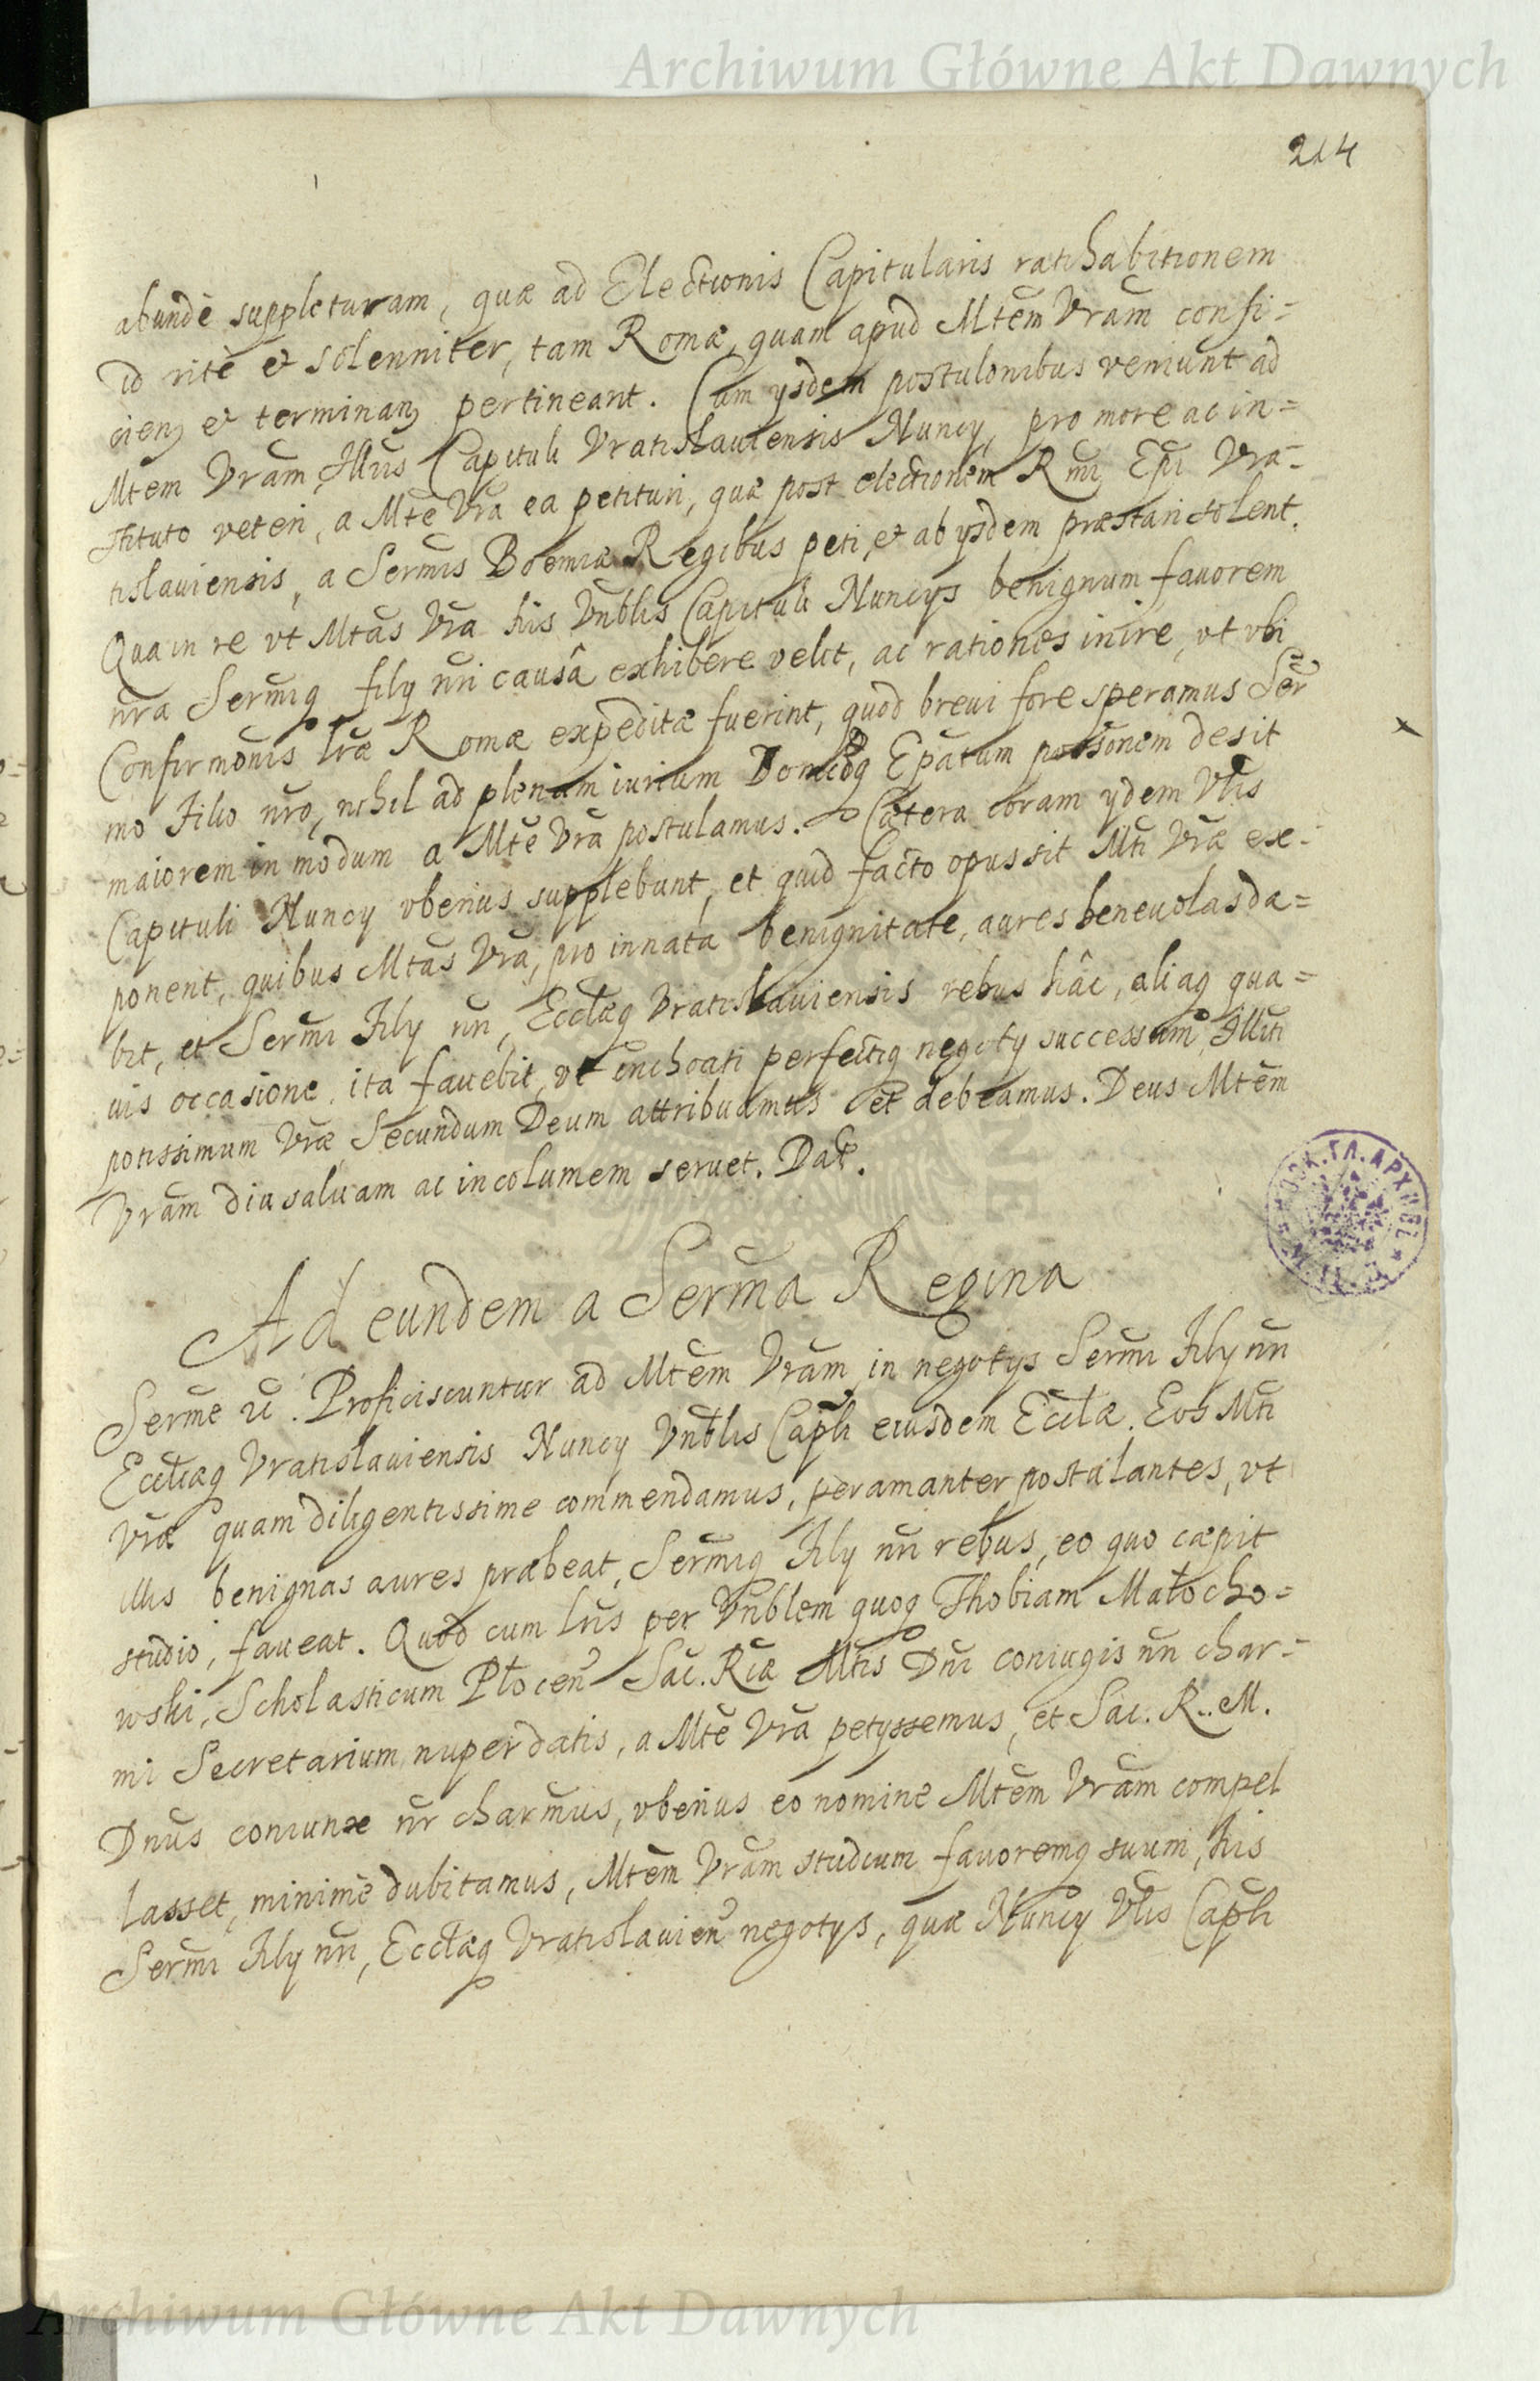 Archiwum Główne Akt Dawnych
214
abundè suppleturam, quæ ad Electionis Capitularis ratihabitionem
id ritè et solenniter, tam Romæ, quam apud Mtēm Vrām confi=
cienꝫ et terminanꝫ pertineant. Cum ysdem postulonibus veniunt ad
Mtem Vrām Illius Capituli Vratislauiensis Nuncy, pro more ac in=
stituto veteri, a Mtē Vrā ea petituri, quæ post electionem Rmi Epi Vra=
tislauiensis, a Sermis Boemiæ Regibus peti, et ab ysdem præstari solent.
Qua in re vt Mtas Vrā his Vnblis Capituli Nuncys benignum fauorem
nrā Sermiq fily nri causâ exhibere velit, ac rationes inire, vt vbi
Confirmonis lræ Romæ expeditæ fuerint, quod breui fore speramus Ser
mo Filio nrō, nihil ad plenam iurium Epātum possonem desit
maiorem in modum a Mtē Vrā postulamus. Cætera coram ydem Vlis
Capituli Nuncy vberius supplebunt, et quid facto opus sit Mti Vræ ex=
ponent, quibus Mtas Vrā, pro innata benignitate, aures beneuolas da=
bit, et Sermi Fily nri, Ecclæq Vratislauiensis rebus hâc, aliaq qua=
uis occasione, ita fauebit, vt inchoati perfectiq negoty successum, Illiti
potissimum Vræ, Secundum Deum attribuamus et debeamus. Deus Mtēm
Vrām diu saluam ac incolumem seruet. Dat.
МОСК. ГЛ. АРХИВ
Ad eundem a Serma Regina
Serme . Proficiscuntur ad Mtēm Vrām in negotys Sermi Fily nri
Eccliæq Vratislauiensis Nuncy Vnblis Capli eiusdem Ecclæ. Eos Mti
Vræ quam diligentissime commendamus, peramanter postulantes, vt
illis benignas aures præbeat, Sermiq Fily nri rebus, eo quo cæpit
studio, faueat. Quod cum lris per Vnblem quoq Thobiam Małocho=
wski, Scholasticum Płocen Sac. Riæ Mtis Dni coniugis nri char=
mi Secretarium nuper datis, a Mtē Vrā petyssemus, et Sac. R. M.
Dnus coniunx nr charmus, vberius eo nomine Mtēm Vrām compel
lasset, minimè dubitamus, Mtēm Vrām studium fauoremq suum, his
Sermi Fily nri, Ecclæq Vratislauien negotys, quæ Nuncy Vlis Capli
Archiwum Główne Akt Dawnych